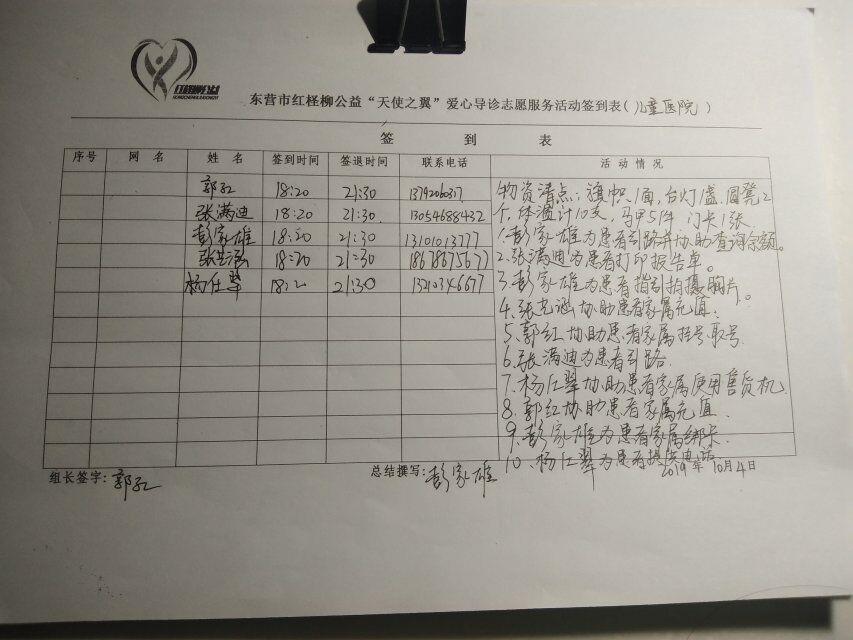 红柽柳公益
东营市红柽柳公益“天使之翼”爱心导诊志愿服务活动签到表(儿童医院)
签 到 表
序号 网 名 姓 名 签到时间 签退时间 联系电话 活 动 情 况
郭红 18:20 21:30
张满迪 18:20 21:30 13054688432
彭家雄 18:20 21:30 13101013777
18:20 21:30 18678675677
杨仕翠 18:20 21:30 13210346677
物资清点:旗帜1面,台灯1盏,圆凳2
个,体温计10支,马甲5件 门卡1张
1.彭家雄为患者引路并协助查询余额。
2.张满迪为患者打印报告单。
3.彭家雄为患者指引拍摄胸片。
4.张 协助患者家属充值.
5.郭红协助患者家属挂号.取号.
6.张满迪为患者引路.
7.杨仕翠协助患者家属使用售货机.
8.郭红协助患者家属充值.
9.彭家雄为患者家属绑卡.
10.杨仕翠为患者提供
组长签字:郭红 总结撰写:彭家雄 2019年10月4日